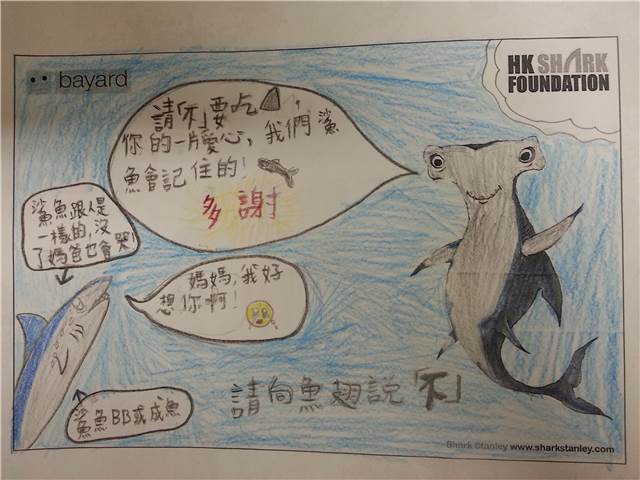 bayard
HK SHARK
FOUNDATION
請「不」要吃,
你的一片愛心, 我們鯊
魚會記住的!
多謝
鯊魚跟人是
一樣的,沒
了媽爸也會哭!
媽媽,我好
想你啊!
鯊魚BB或成魚
請向魚翅說「不」
Shark Stanley www.sharkstanley.com